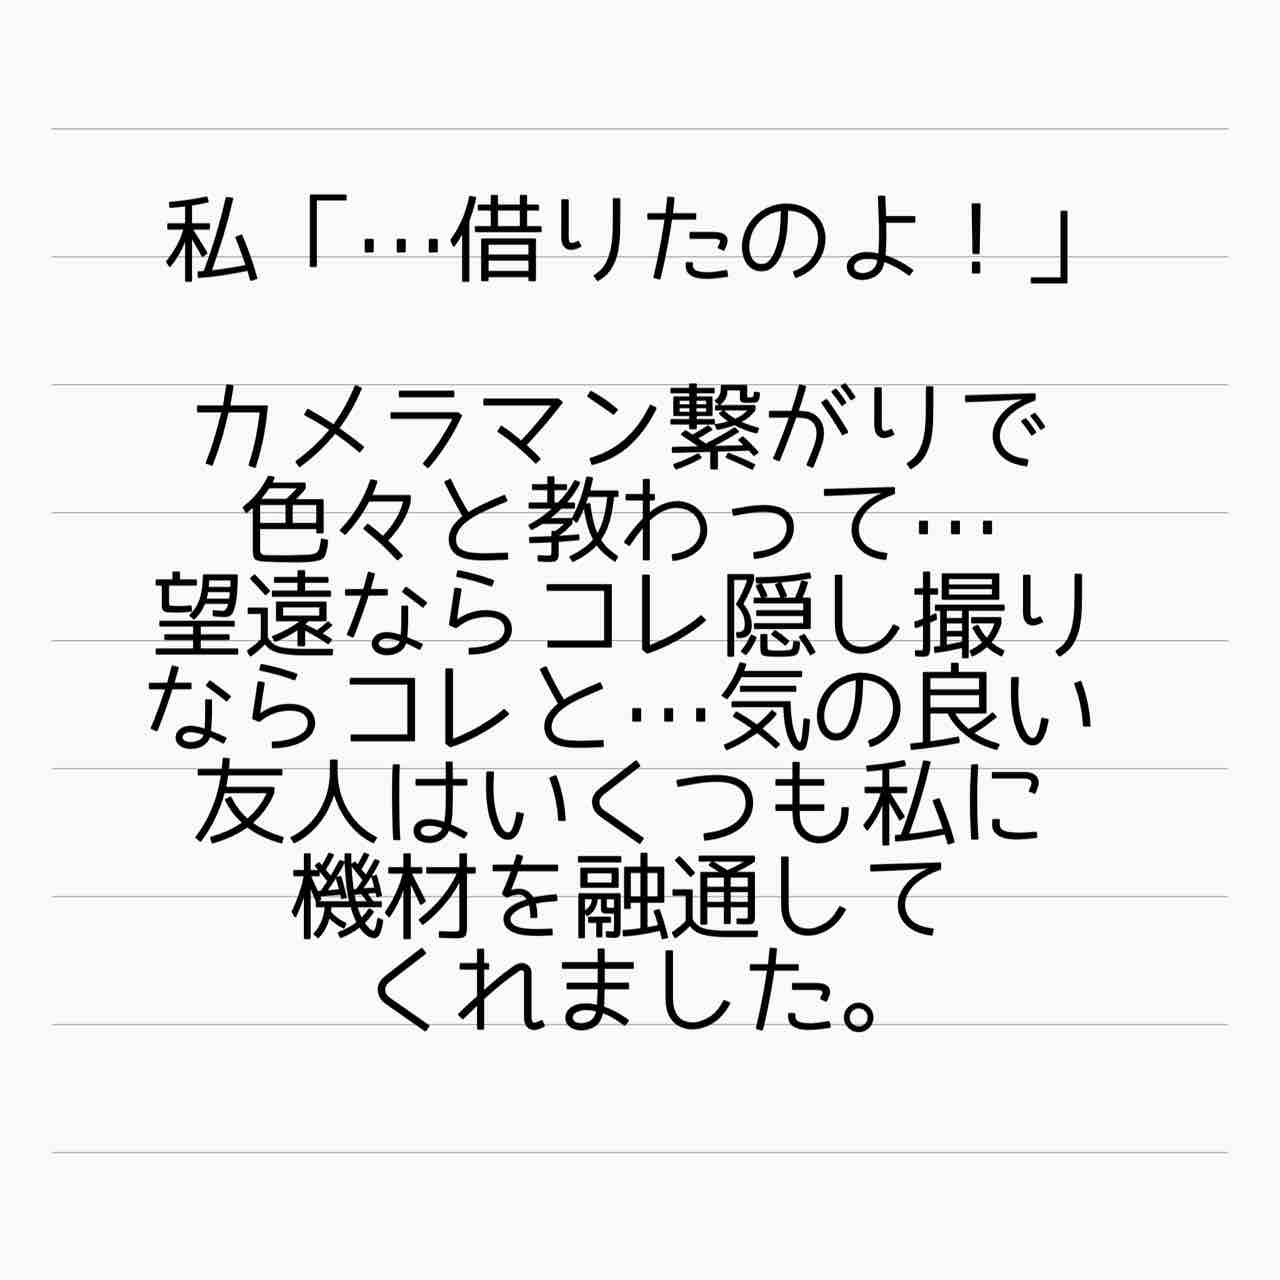 私「…借りたのよ！」
カメラマン繋がりで
色々と教わって…
望遠ならコレ隠し撮り
ならコレと…気の良い
友人はいくつも私に
機材を融通して
くれました。